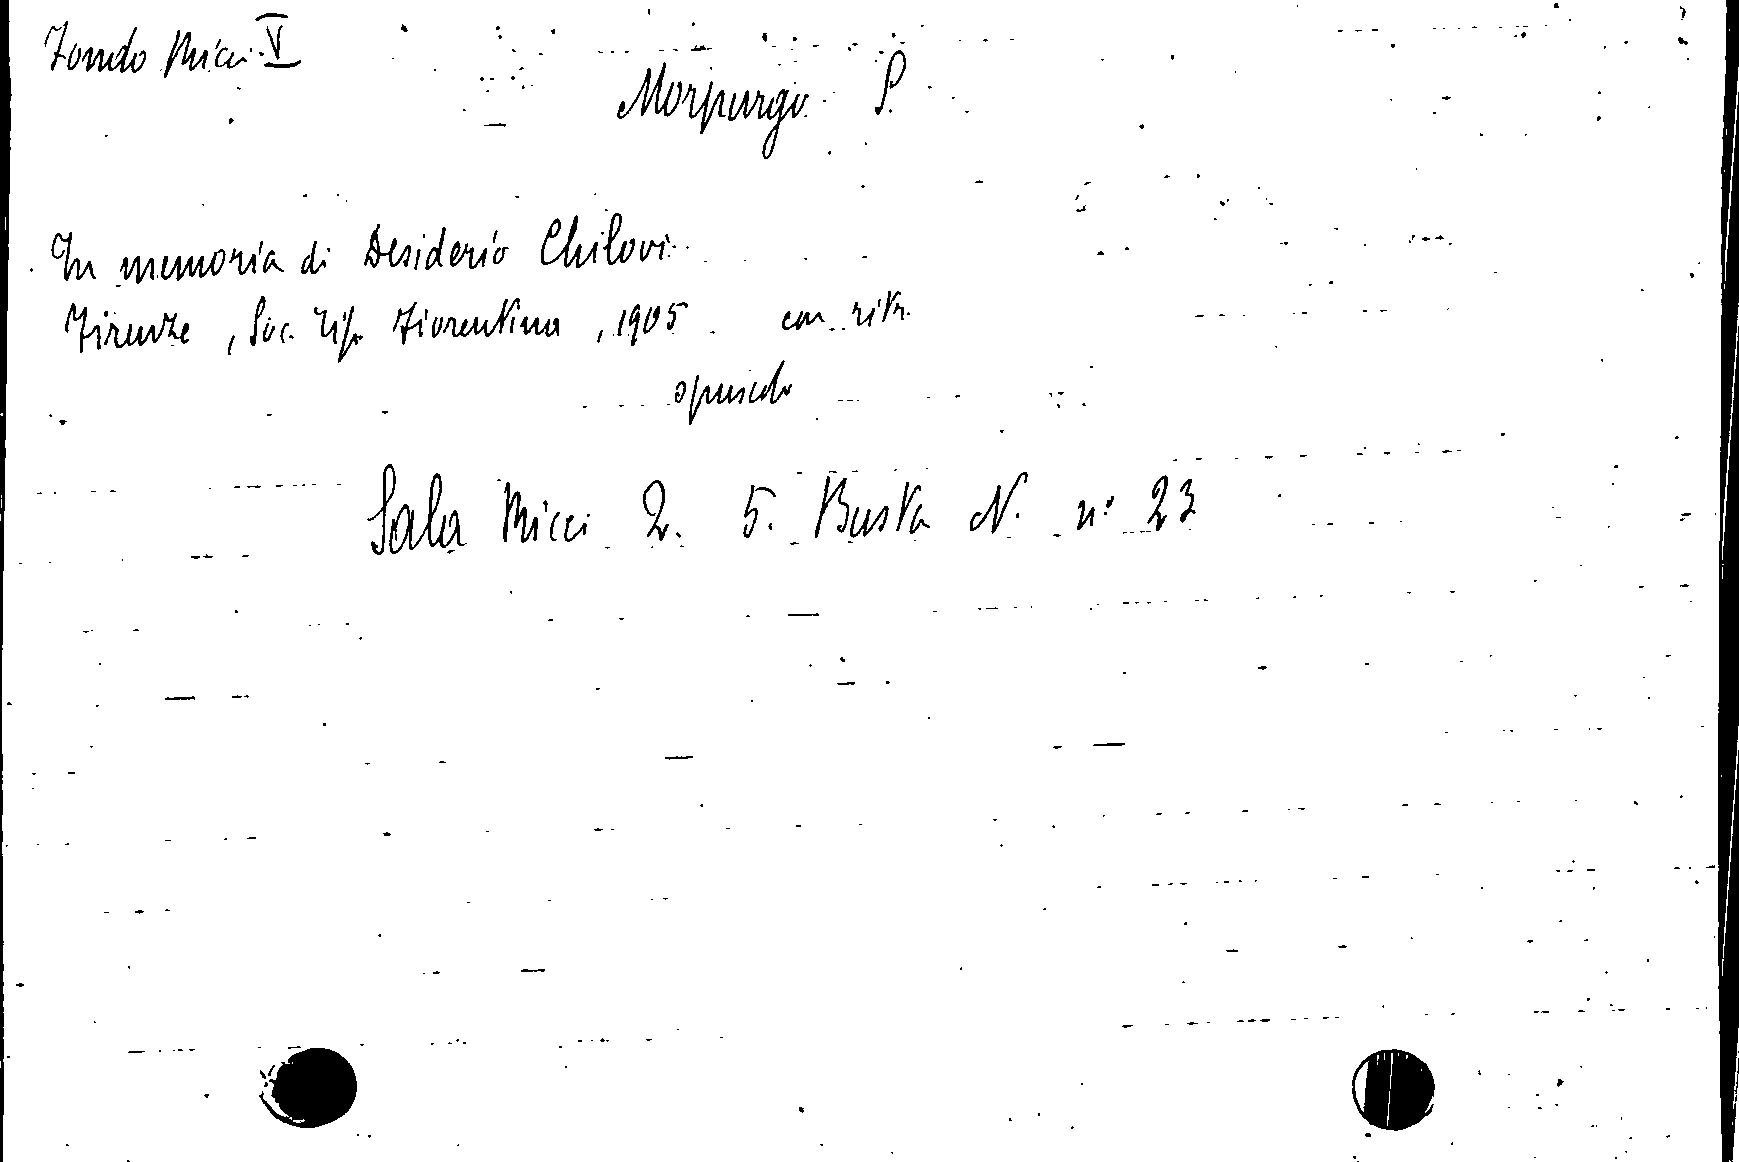 Fondo Ricci V
Morpurgo S.
In memoria di Desiderio Chilovi
Firenze, Soc. Tip. Fiorentina, 1905 con ritr.
opuscolo
Sala Ricci 2. 5. Busta N. n° 23